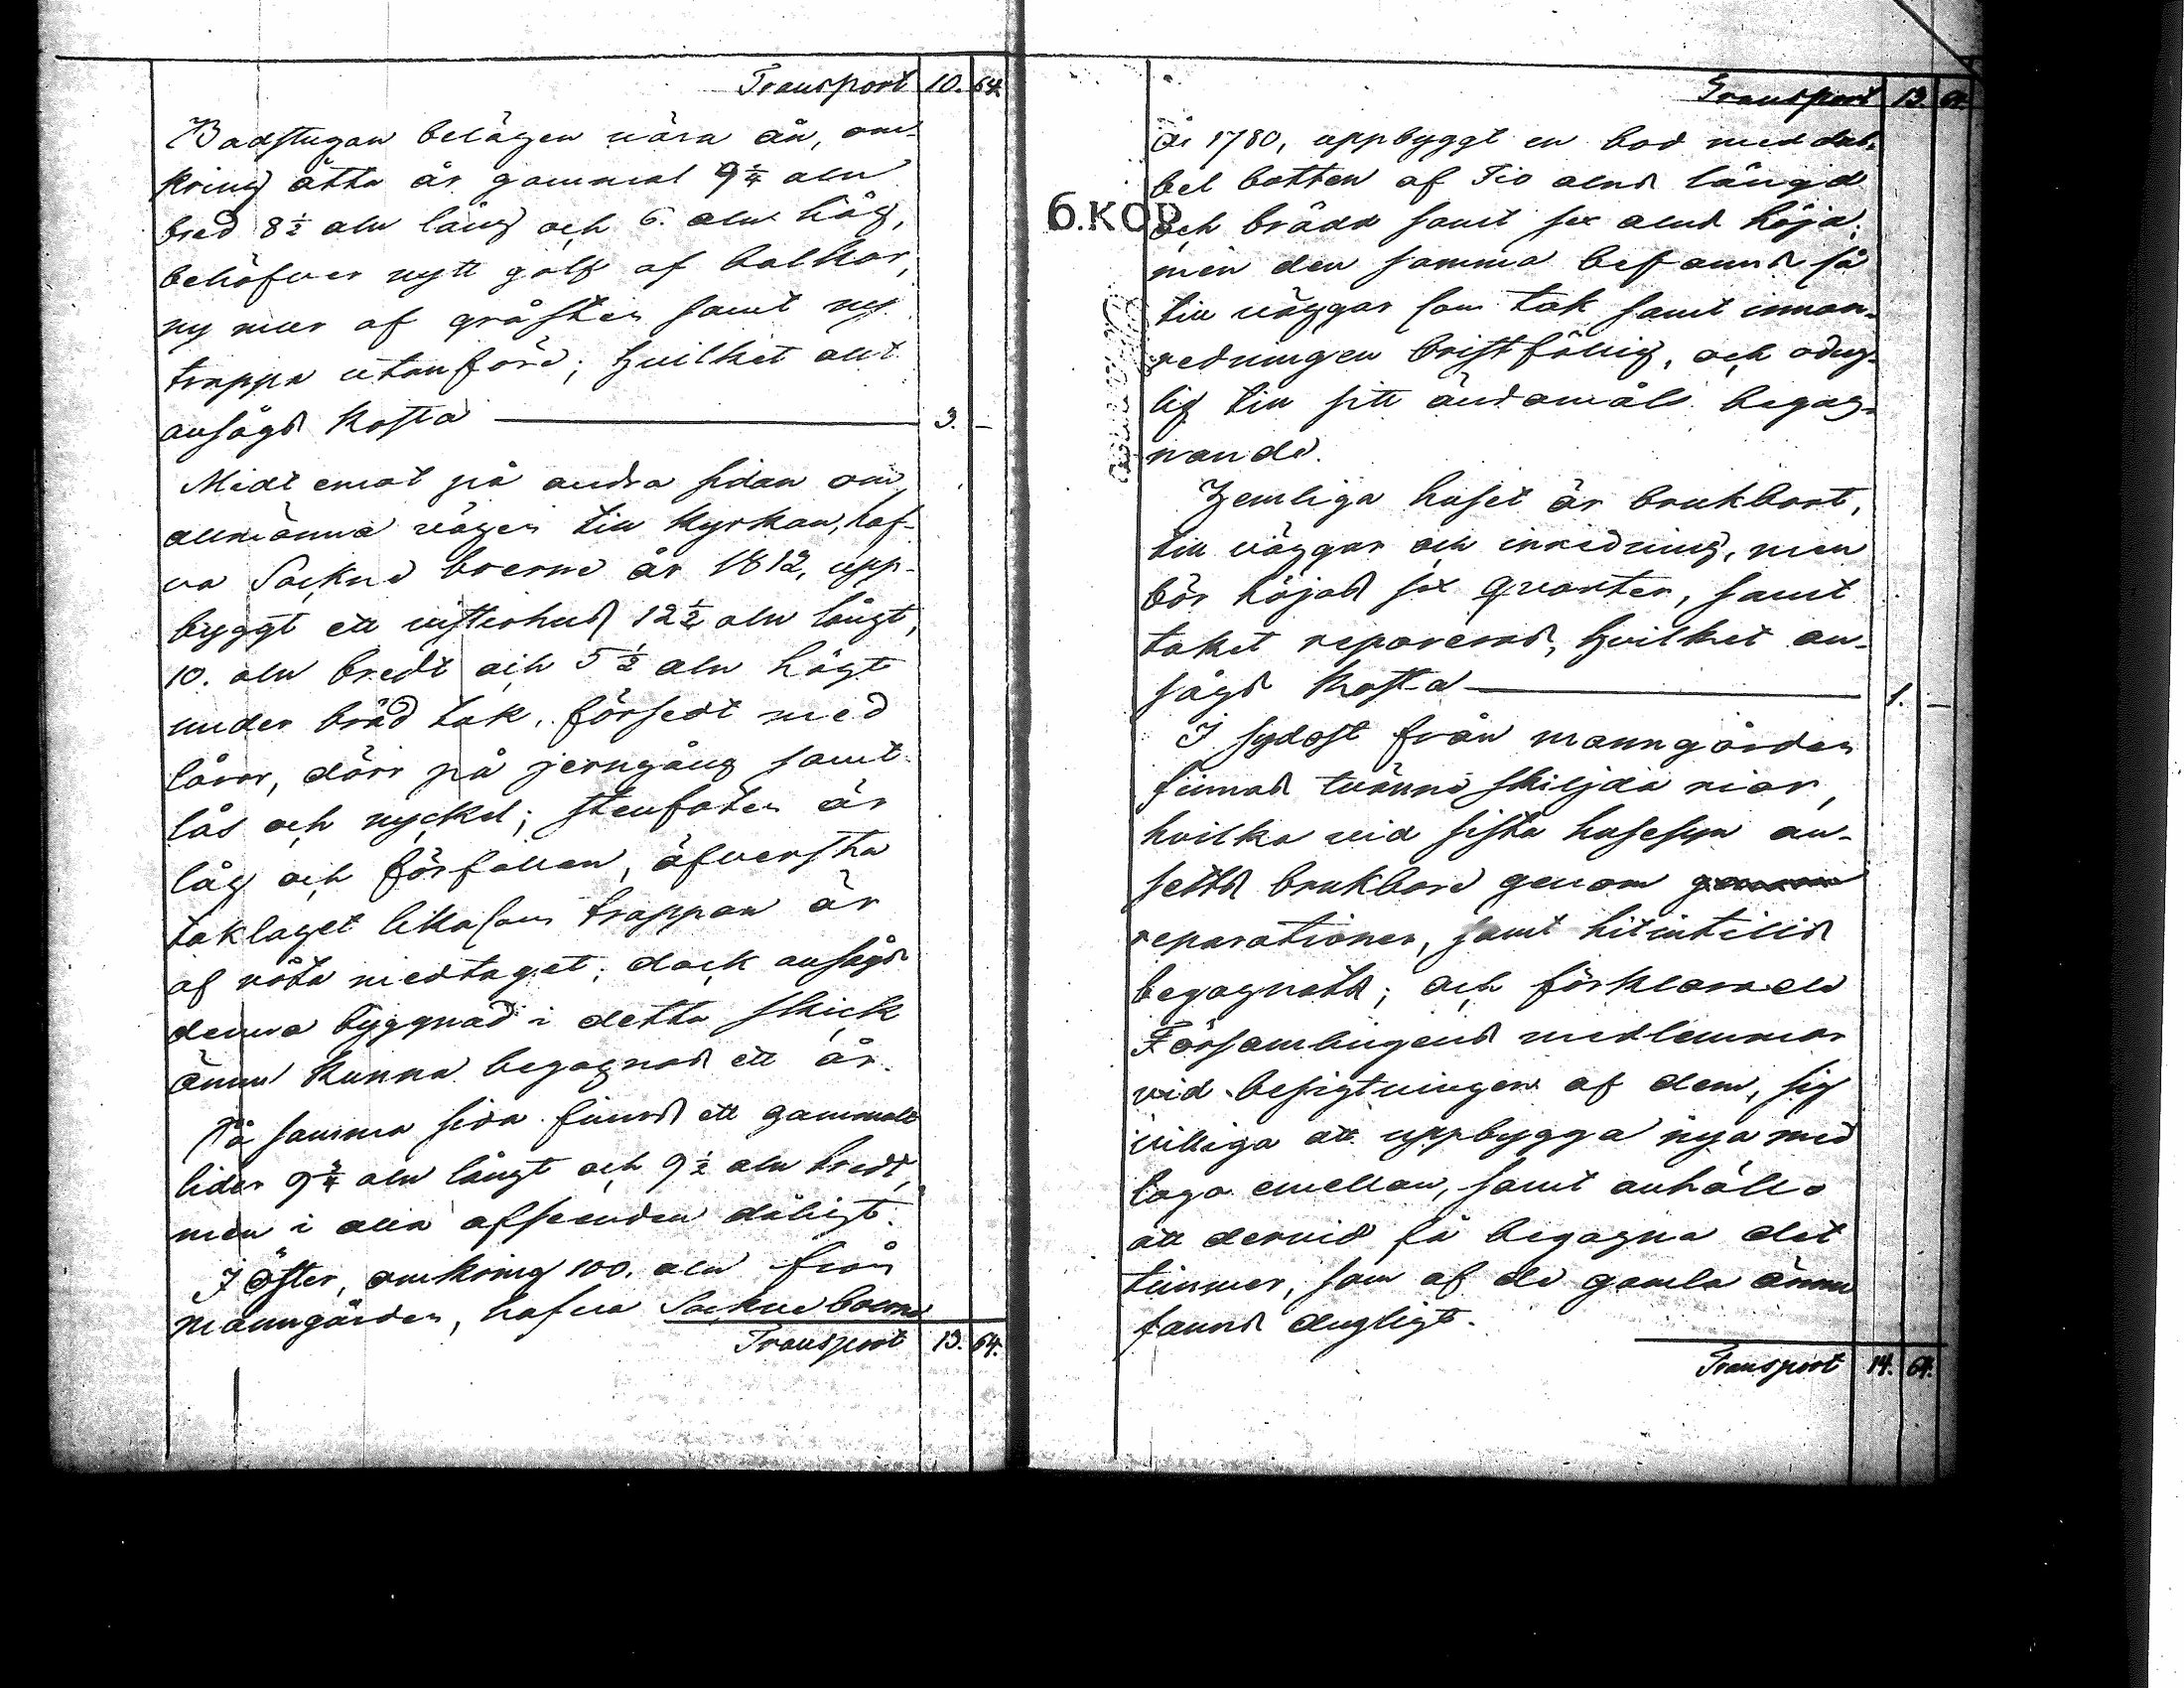 Transport 10. 64.
Badstugan belägen nära ån, om-
kring åtta år gammal 9 1/4 aln
bred 8 1/2 aln lång och 6. aln hög,
behöfver nytt golf af balkar,
ny mur af gråsten samt ny
trappa utanföre; hvilket allt
ansågs kosta 3. –
Midt emot på andra sidan om
allmänna vägen till kyrkan, haf-
va Sockne boerne år 1812, upp-
byggt ett visterhus 12 1/2 aln långt,
10. aln bredt och 5 1/2 aln högt
under bräd tak, försedt med
lårar, dörr på jerngång samt
lås och nyckel; stenfoten är
låg och förfallen, öfversta
taklaget likasom trappan är
af röta medtaget; dock ansågs
denna byggnad i detta skick
ännu kunna begagnas ett år.
På samma sida finnes ett gammalt
lider 9 3/4 aln långt och 9 1/2 aln bredt,
men i alla afseenden dåligt.
I öster, omkring 100. aln från
manngården, hafva Sockne boerne
Transport 13. 64.
Transport 13. 64.
år 1780, uppbyggt en bod med dub-
bel botten af Tio alns längd
6.KOP
och brädd samt sex alns höjd;
men den samma befanns så
till väggar som tak samt innan-
redningen bristfällig, och odug-
lig till sitt ändamåls begag-
nande.
Hemliga huset är brukbart,
till väggar och inredning, men
bör höjas sex quarter, samt
taket repareras, hvilket an-
sågs kosta 1. –
I sydost från manngården
finnas tvänne skiljda rior,
hvilka vid sista husesyn an-
setts brukbara genom
reparationer, samt hitintills
begagnats; och förklarade
Församlingens medlemmar
vid besigtningen af dem, sig
villiga att uppbygga nya med
loga emellan, samt anhöllo
att dervid få begagna det
timmer, som af de gamla ännu
fanns dugligt.
Transport 14. 64.